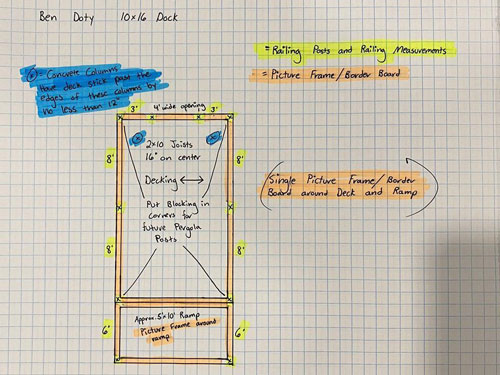 Ben Doty 10x16 Dock
= Railing Posts and Railing Measurements
= Picture Frame/Border Board
= Concrete Columns
Have deck stick past the
edges of these columns by
no less than 12"
3' 4' wide opening 3'
2x10 Joists
16" on center
8' 8'
Decking
Put Blocking in
corners for
future Pergola
Posts
8' 8'
(Single Picture Frame/Border
Board around Deck and Ramp)
Approx. 5'x10' Ramp
Picture Frame around
ramp
6' 6'